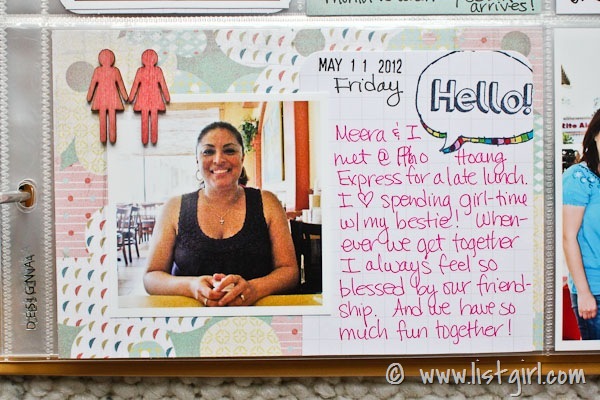 arrives!
MAY 11 2012
Friday
Hello!
Meera & I
met @ Pho Hoang
Express for a late lunch.
I ♡ spending girl-time
w/my bestie! When-
ever we get together
I always feel so
blessed by our friend-
ship. And we have so
much fun together!
© www.listgirl.com